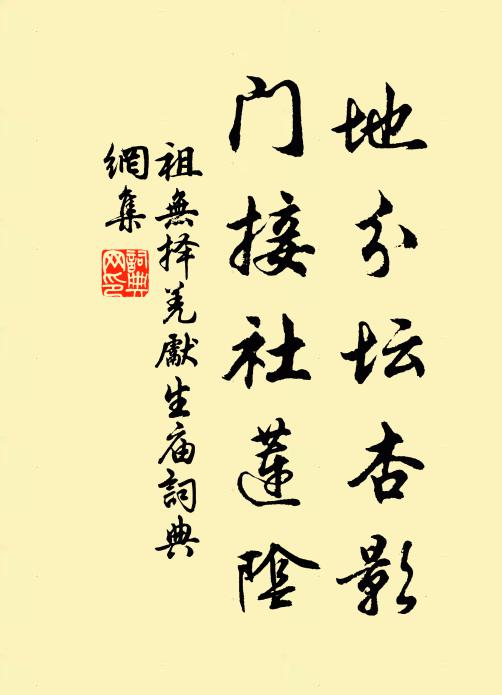 地分坛杏影
门接社蓮陰
祖無择羌獻生庙詞典
網集
詞典
网印